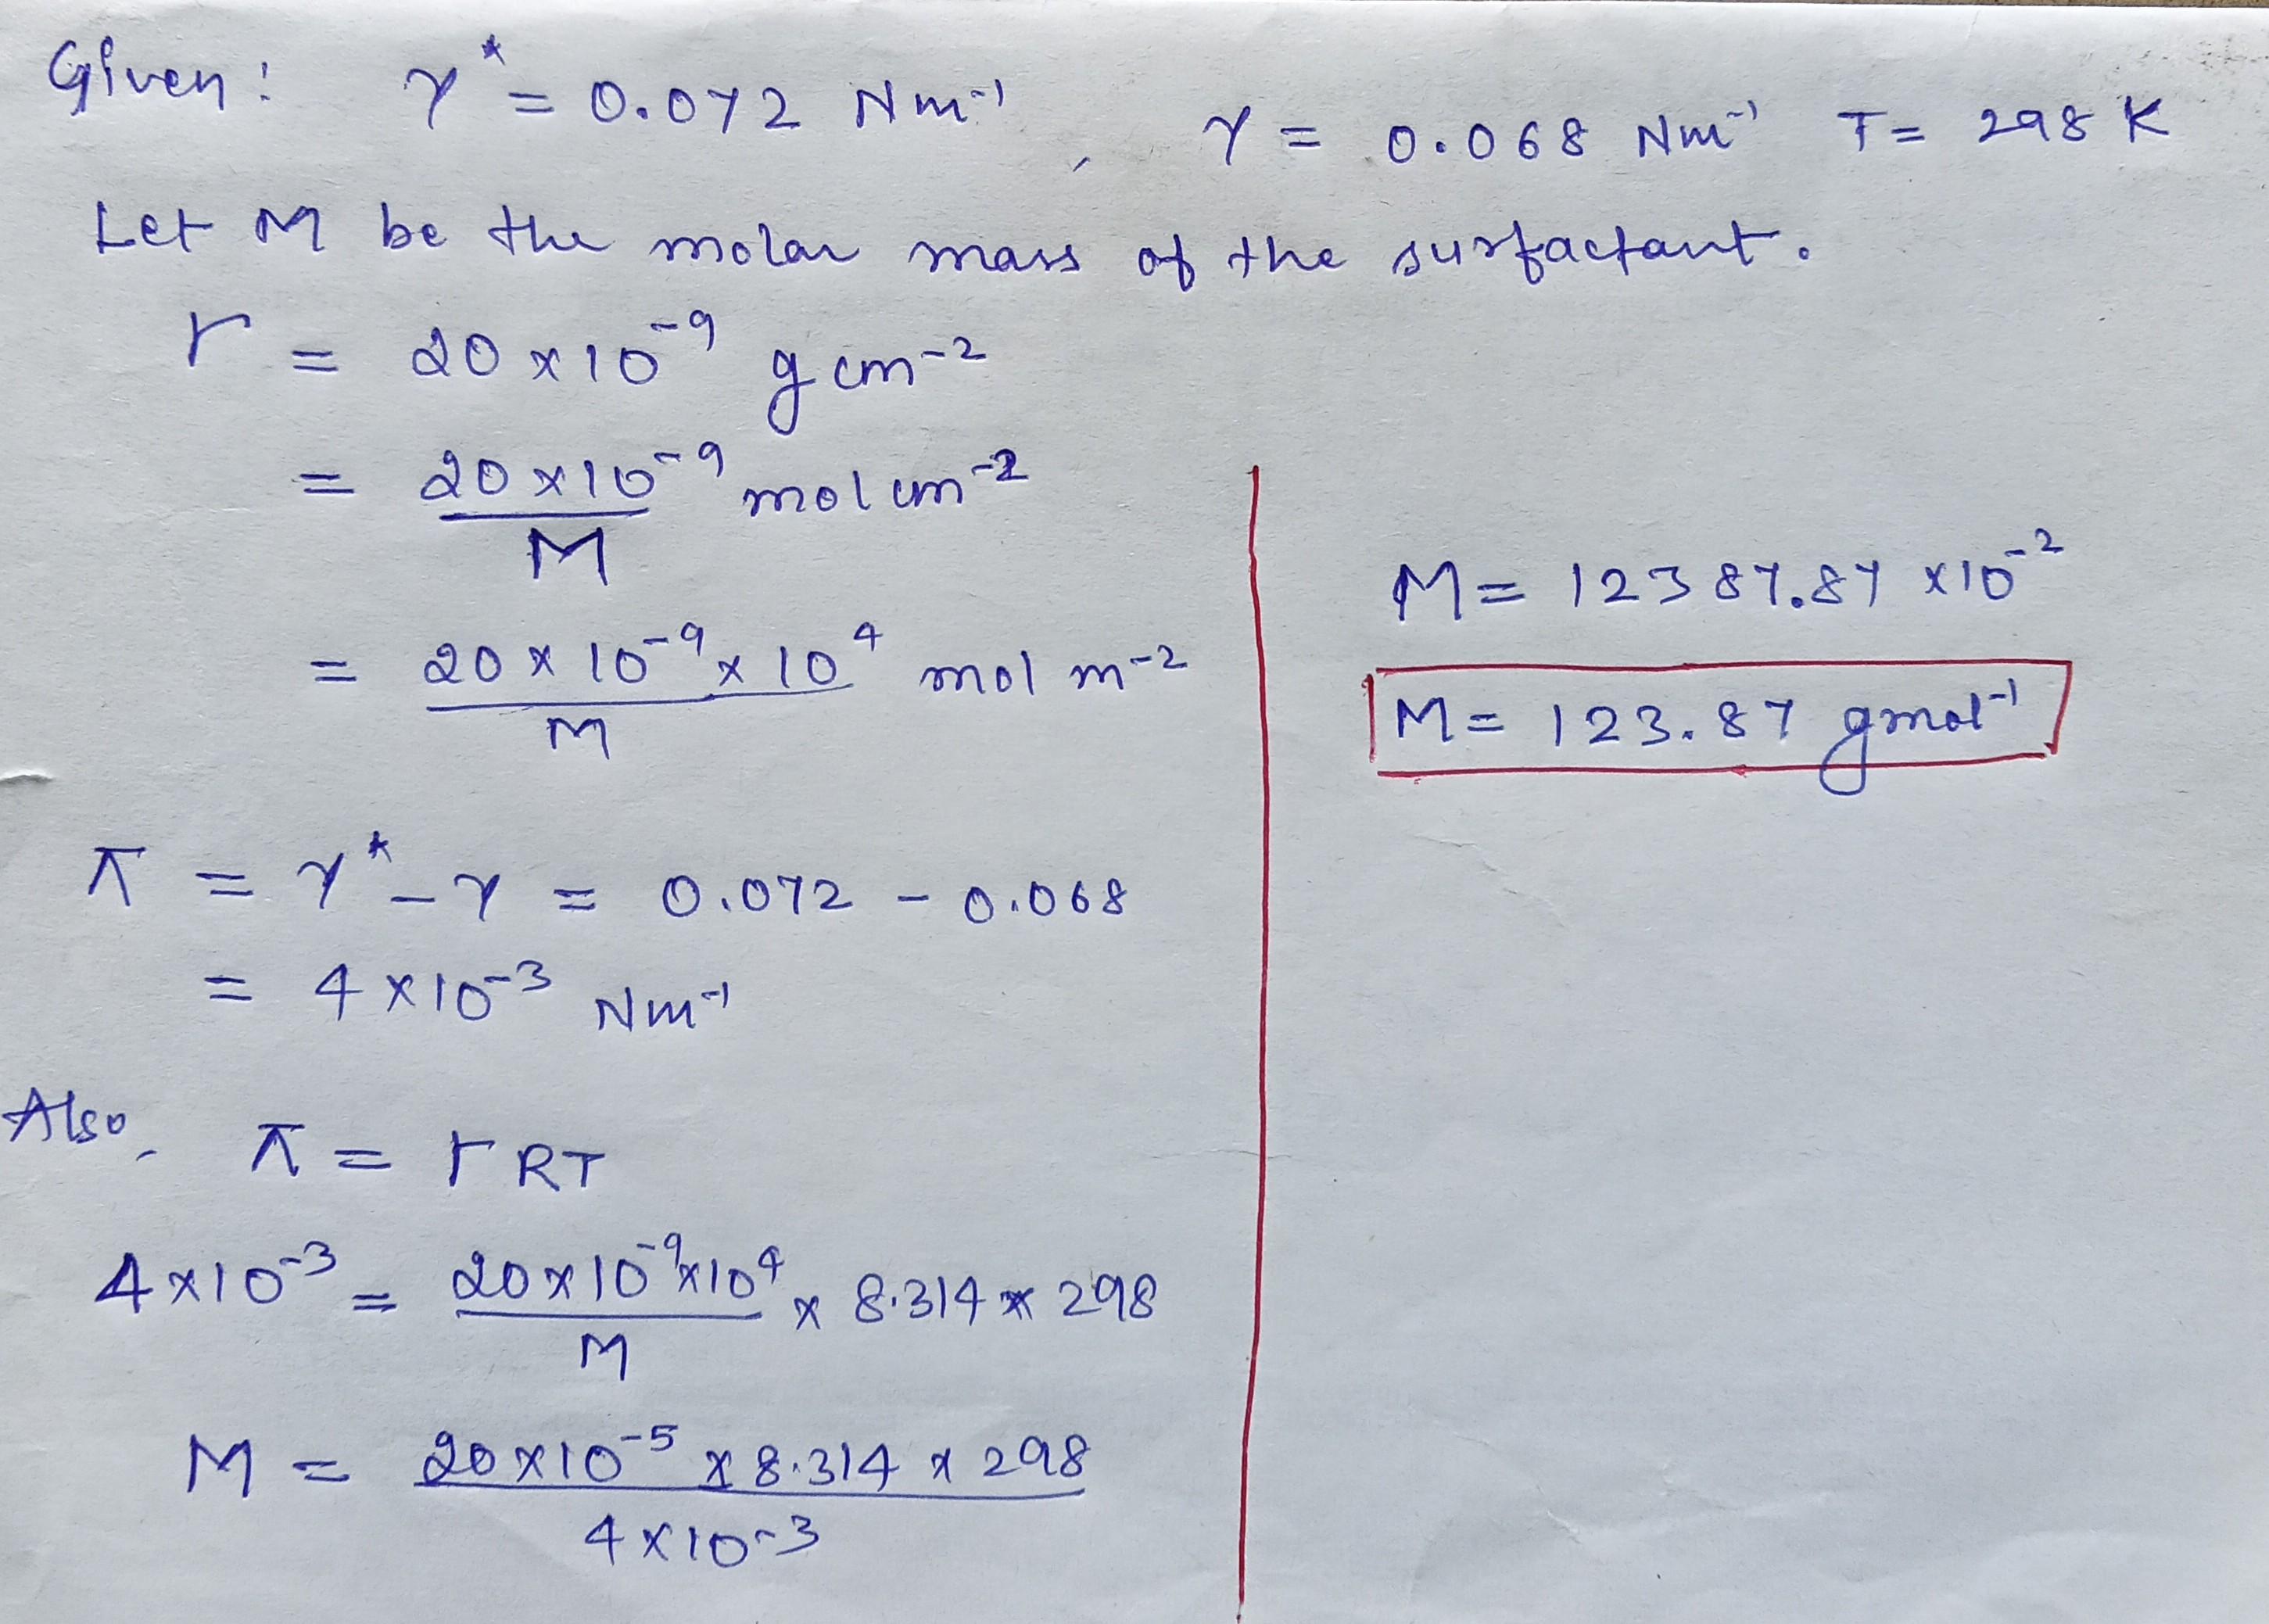 Given: γ* = 0.072 Nm⁻¹, γ = 0.068 Nm⁻¹ T = 298 K
Let M be the molar mass of the surfactant.
Γ = 20 × 10⁻⁹ g cm⁻²
= 20 × 10⁻⁹ / M mol cm⁻²
= 20 × 10⁻⁹ × 10⁴ / M mol m⁻²
π = γ* - γ = 0.072 - 0.068
= 4 × 10⁻³ Nm⁻¹
Also, π = Γ RT
4 × 10⁻³ = 20 × 10⁻⁹ × 10⁴ / M × 8.314 × 298
M = 20 × 10⁻⁵ × 8.314 × 298 / 4 × 10⁻³
M = 12387.87 × 10⁻²
M = 123.87 gmol⁻¹